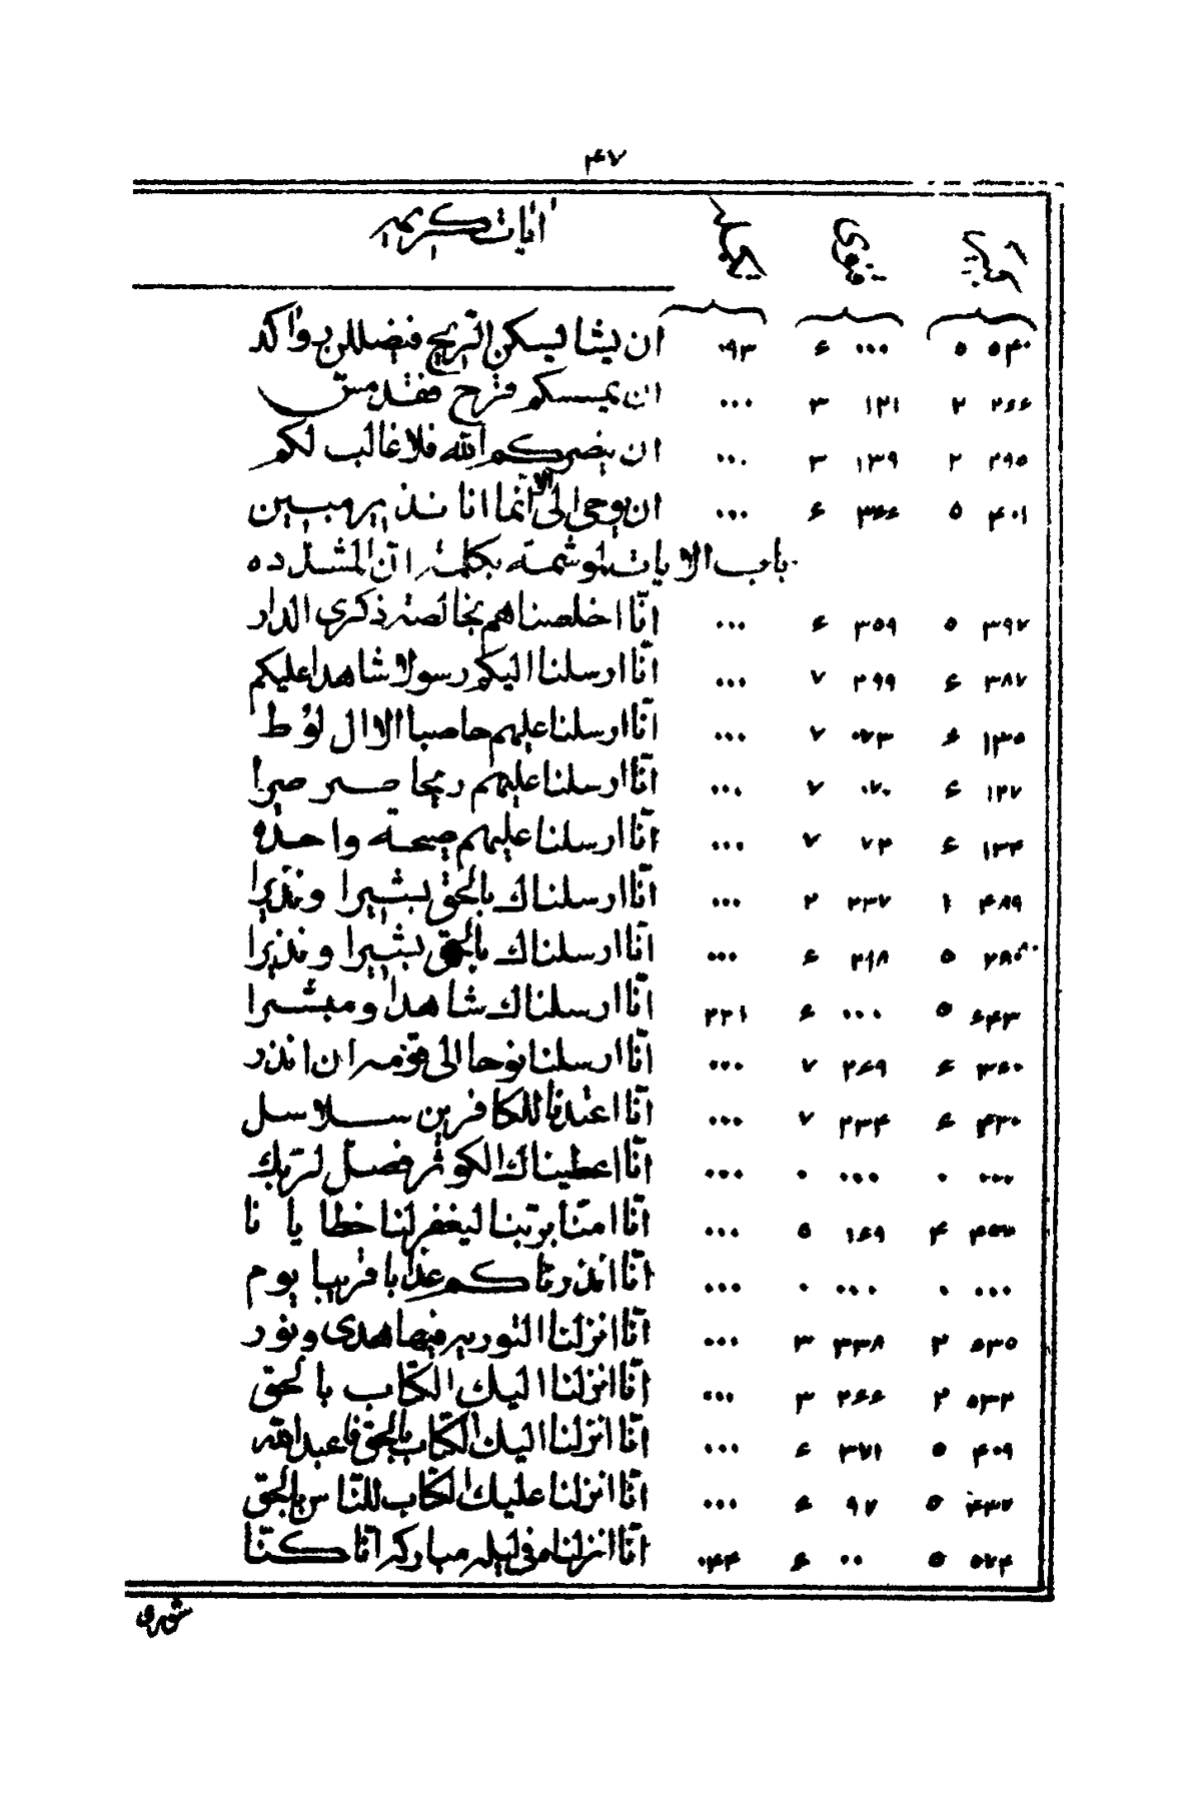 ۴۷
ایات کریمه
۵۴۰ ۵ ۰۰۰ ۶ ۰۹۳ ان یشا لیسکن الریح فیضللن رواکد
۲۶۶ ۲ ۱۲۱ ۳ ۰۰۰ ان یمسسکم قرح فقد مس
۲۹۵ ۲ ۱۳۹ ۳ ۰۰۰ ان ینصرکم الله فلا غالب لکم
۴۰۱ ۵ ۳۶۶ ۶ ۰۰۰ ان یوحی الی الا انما انا نذیر مبین
باب الایات بکلمة ان المشدده
۳۹۷ ۵ ۳۵۹ ۶ ۰۰۰ انّا اخلصناهم بخالصة ذکری الدار
۳۸۷ ۶ ۲۹۹ ۷ ۰۰۰ انّا ارسلنا الیکم رسولا شاهدا علیکم
۱۳۵ ۶ ۰۷۳ ۷ ۰۰۰ انّا ارسلنا علیهم حاصبا الا ال لوط
۱۲۷ ۶ ۰۷۰ ۷ ۰۰۰ انّا ارسلنا علیهم ریحا صرصرا
۱۳۴ ۶ ۷۳ ۷ ۰۰۰ انّا ارسلنا علیهم صیحة واحده
۴۸۹ ۱ ۲۳۷ ۲ ۰۰۰ انّا ارسلناک بالحق بشیرا و نذیرا
۲۸۰ ۵ ۲۱۸ ۶ ۰۰۰ انّا ارسلناک بالحق بشیرا و نذیرا
۶۴۳ ۵ ۰۰۰ ۶ ۲۲۱ انّا ارسلناک شاهدا و مبشرا
۳۶۰ ۶ ۲۶۹ ۷ ۰۰۰ انّا ارسلنا نوحا الی قومه ان انذر
۴۳۰ ۶ ۲۳۴ ۷ ۰۰۰ انّا اعتدنا للکافرین سلاسل
۰۰۰ ۰ ۰۰۰ ۰ ۰۰۰ انّا اعطیناک الکوثر فصلّ لربّک
۴۵۷ ۴ ۱۶۹ ۵ ۰۰۰ انّا امنّا بربّنا لیغفر لنا خطایانا
۰۰۰ ۰ ۰۰۰ ۰ ۰۰۰ انّا انذرناکم عذابا قریبا یوم
۵۳۵ ۲ ۳۳۸ ۳ ۰۰۰ انّا انزلنا التوریه فیها هدی و نور
۵۳۲ ۲ ۲۶۶ ۳ ۰۰۰ انّا انزلنا الیک الکتاب بالحق
۴۰۹ ۵ ۳۷۱ ۶ ۰۰۰ انّا انزلنا الیک الکتاب بالحق فاعبد الله
۴۳۷ ۵ ۹۷ ۶ ۰۰۰ انّا انزلنا علیک الکتاب للنّاس بالحق
۵۷۴ ۵ ۰۰ ۶ ۰۴۴ انّا انزلناه فی لیله مبارکه انّا کنّا